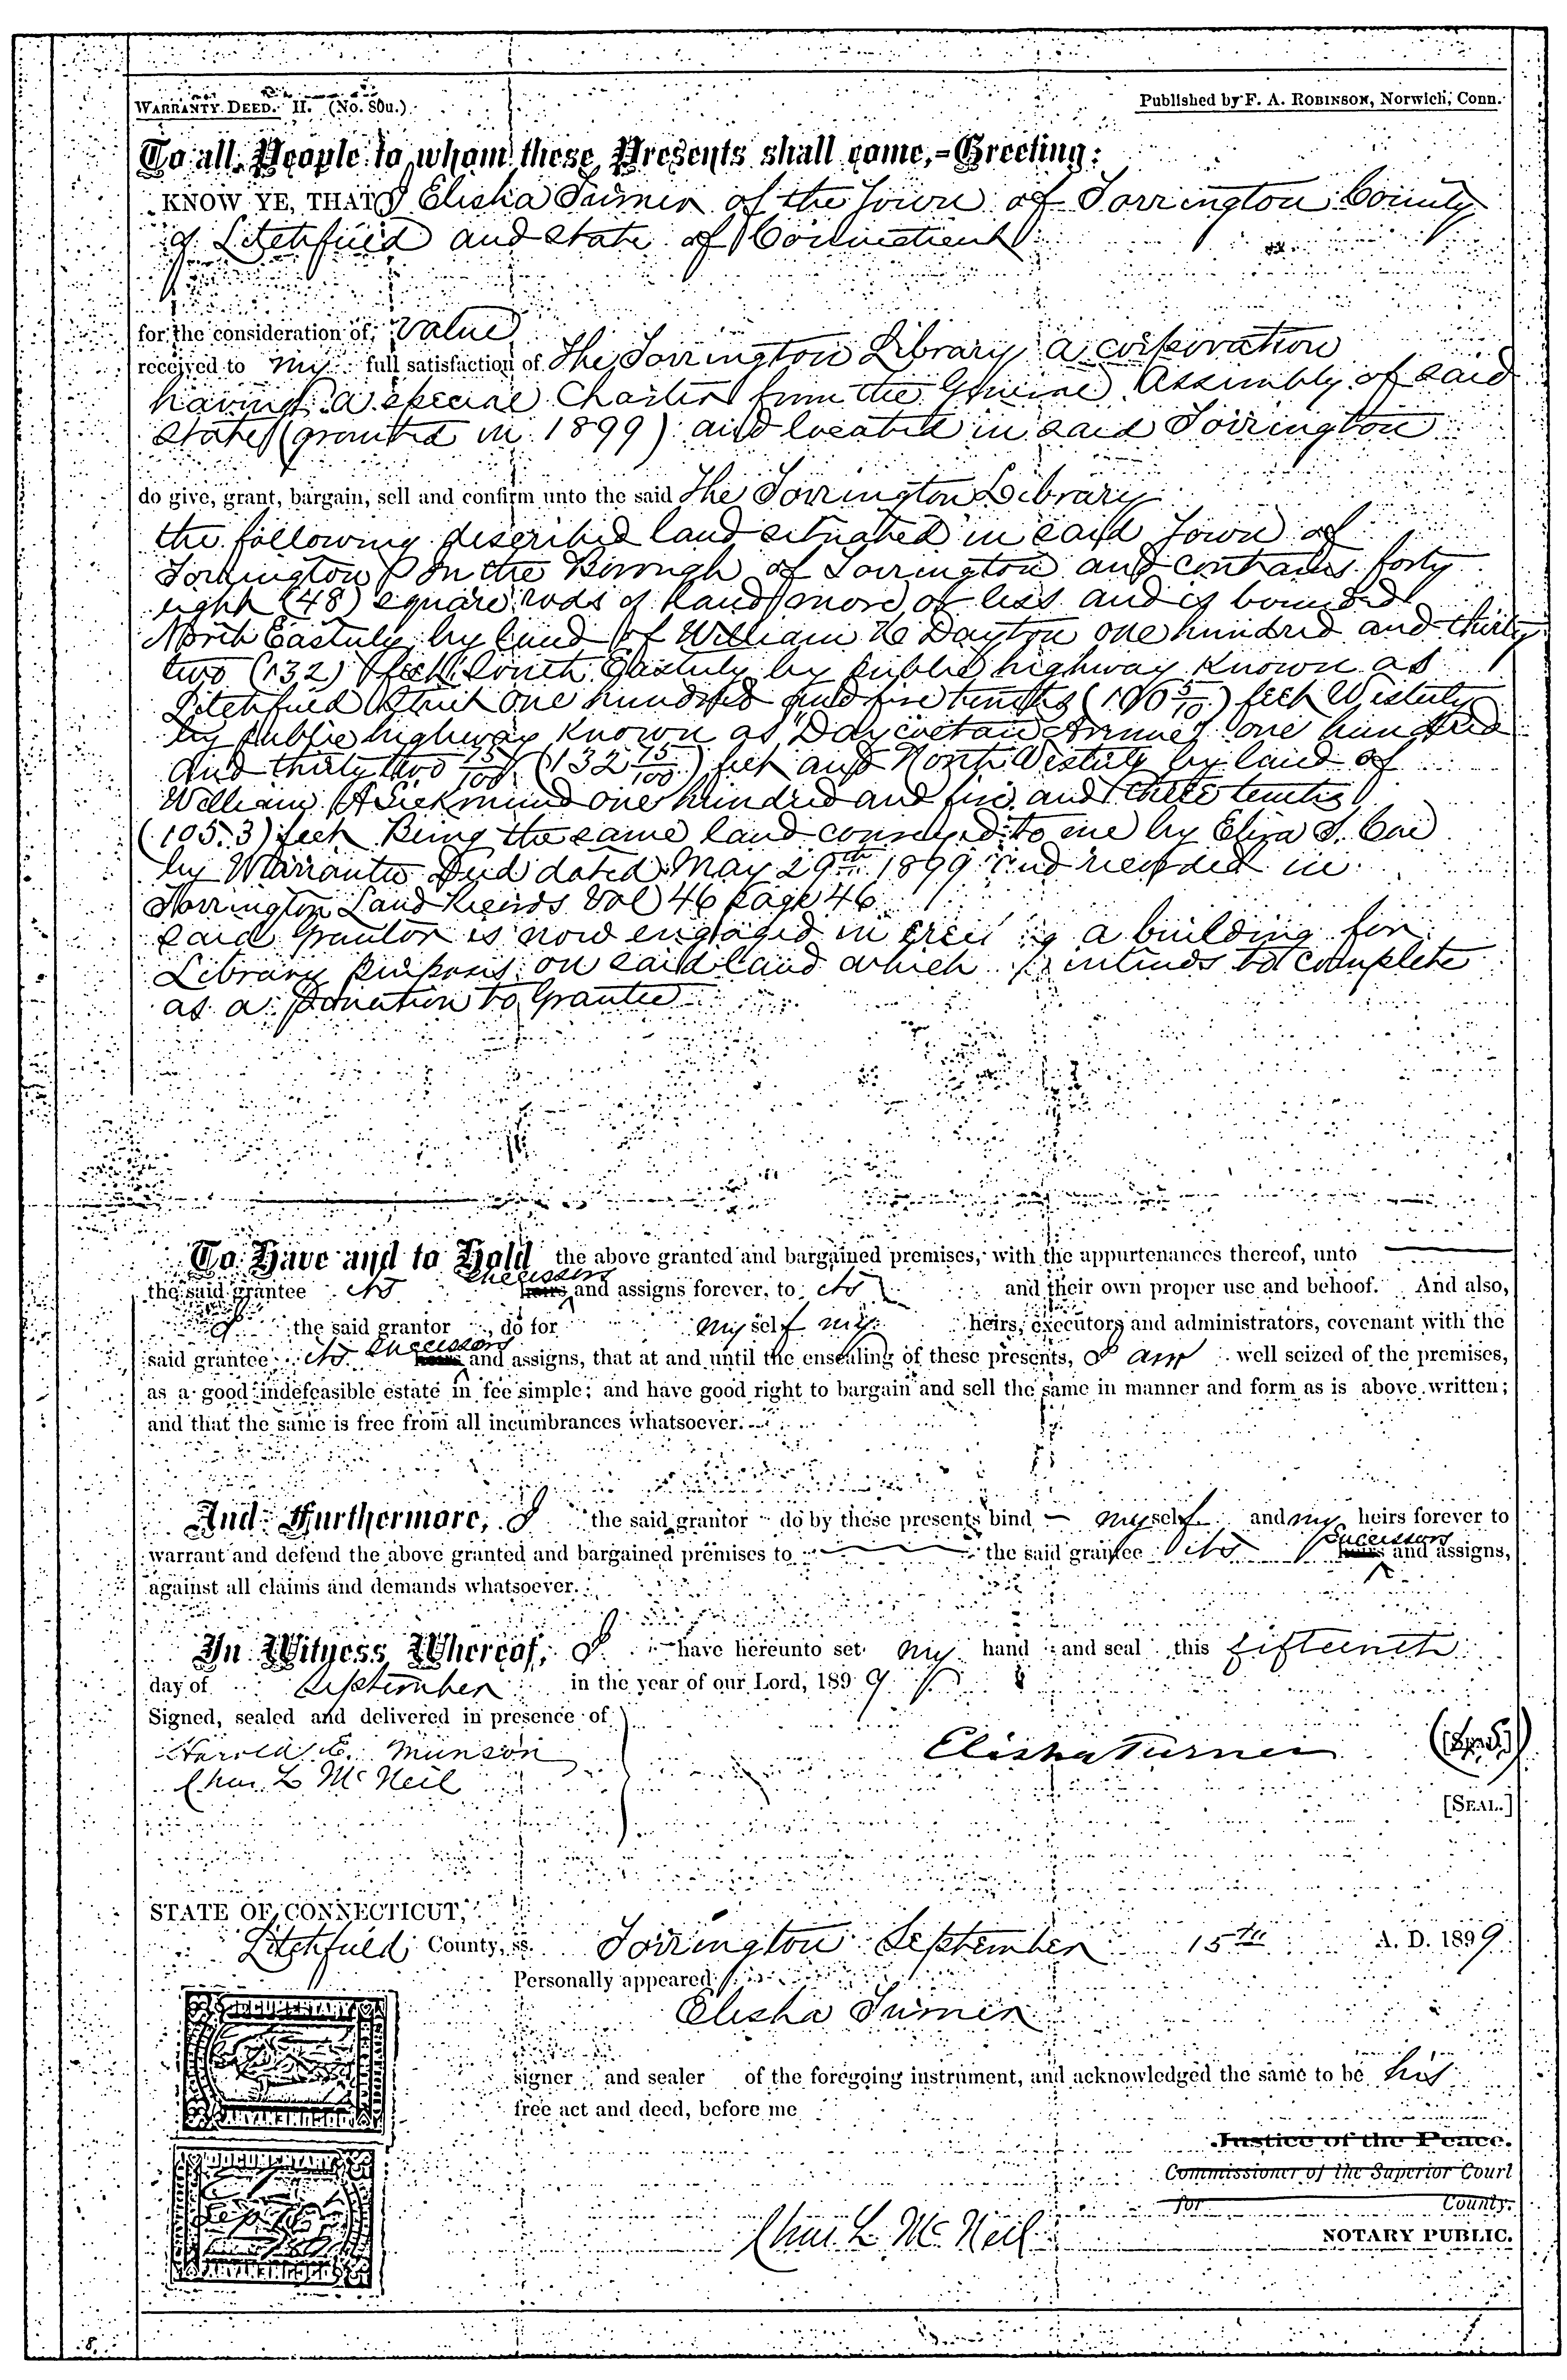 WARRANTY DEED. II. (No. 80u.) Published by F. A. ROBINSON, Norwich, Conn.
To all People to whom these Presents shall come,=Greeting:
KNOW YE, THAT I Elisha Turner of the Town of Torrington County
of Litchfield and State of Connecticut
for the consideration of, value
received to my full satisfaction of The Torrington Library a corporation
having a special Charter from the General Assembly of said
State (granted in 1899) and located in said Torrington
do give, grant, bargain, sell and confirm unto the said The Torrington Library
the following described land situated in said Town of
Torrington in the Borough of Torrington and contains forty
eight (48) square rods of land more or less and is bounded
North Easterly by land of William H Dayton one hundred and thirty
two (132) feet South Easterly by public highway known as
Litchfield Street one hundred and five tenths (100 5/10) feet Westerly
by public highway known as "Daycoeton Avenue" one hundred
and thirty two 75/100 (132 75/100) feet and North Westerly by land of
William A one hundred and five and three tenths
(105.3) feet Being the same land conveyed to me by Eliza S. Coe
by Warrantee Deed dated May 29th 1899 and recorded in
Torrington Land Records Vol 46 page 46
Said Grantor is now engaged in erecting a building for
Library purposes on said land which intends to complete
as a Donation to Grantee
To Have and to Hold the above granted and bargained premises, with the appurtenances thereof, unto
the said grantee its successors heirs and assigns forever, to its and their own proper use and behoof. And also,
I the said grantor, do for myself my heirs, executors and administrators, covenant with the
said grantee its successors heirs and assigns, that at and until the ensealing of these presents, I am well seized of the premises,
as a good indefeasible estate in fee simple; and have good right to bargain and sell the same in manner and form as is above written;
and that the same is free from all incumbrances whatsoever.
And Furthermore, I the said grantor do by these presents bind myself and my heirs forever to
warrant and defend the above granted and bargained premises to the said grantee its successors heirs and assigns,
against all claims and demands whatsoever.
In Witness Whereof, I have hereunto set my hand and seal this fifteenth
day of September in the year of our Lord, 1899
Signed, sealed and delivered in presence of
Harold E. Munson Elisha Turner [SEAL.]
Chas. L. McNeil
[SEAL.]
STATE OF CONNECTICUT,
Litchfield County, ss. Torrington September 15th A. D. 1899
Personally appeared
Elisha Turner
DOCUMENTARY
signer and sealer of the foregoing instrument, and acknowledged the same to be his
free act and deed, before me
Justice of the Peace.
DOCUMENTARY
Commissioner of the Superior Court
for County.
Chas. L. McNeil NOTARY PUBLIC.
8.